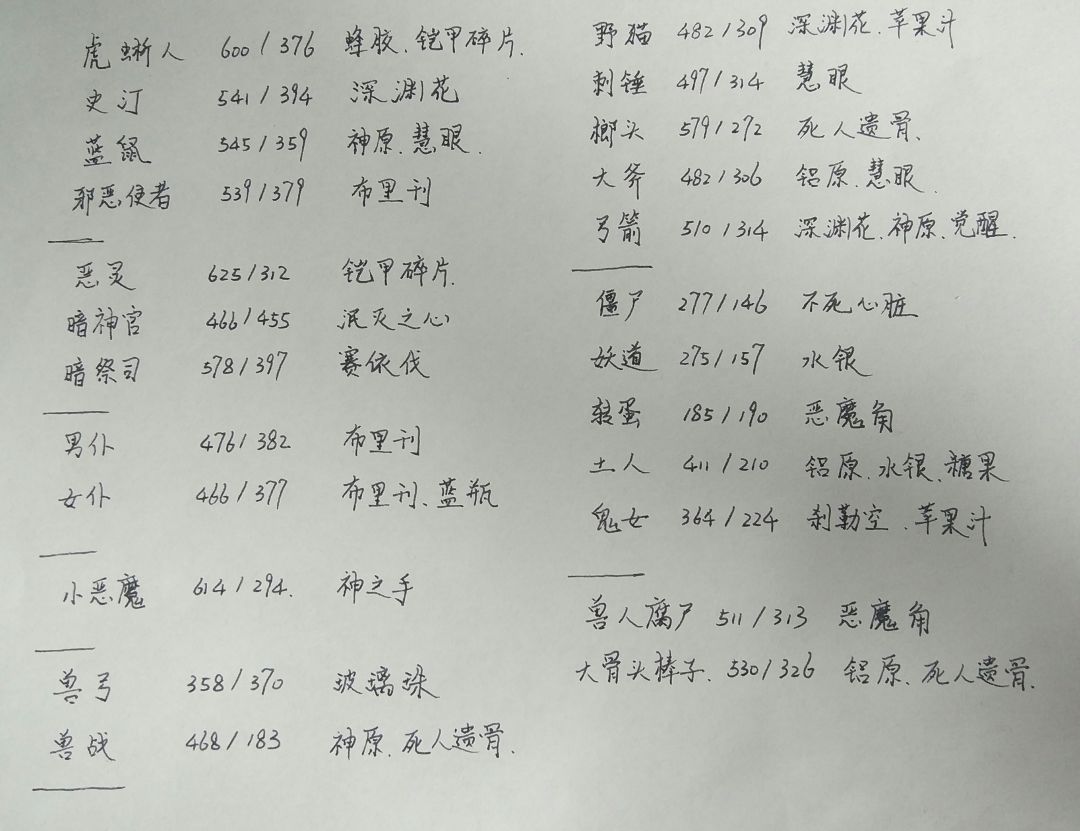 虎蜥人 600/376 蜂胶、铠甲碎片.
史汀 541/394 深渊花
蓝鼠 545/359 神原、慧眼.
邪恶使者 539/379 布里刊
恶灵 625/312 铠甲碎片.
暗神官 466/455 泯灭之心
暗祭司 578/397 赛依伐
男仆 476/382 布里刊
女仆 466/377 布里刊、蓝瓶
小恶魔 614/294. 神之手
兽弓 358/370 玻璃珠
兽战 468/183 神原、死人遗骨.
野猫 482/309 深渊花、苹果汁
刺锤 497/314 慧眼
榔头 579/272 死人遗骨.
大斧 482/306 铝原、慧眼.
弓箭 510/314 深渊花、神原、觉醒.
僵尸 277/146 不死心脏
妖道 275/157 水银
转蛋 185/190 恶魔角
土人 411/210 铝原、水银、糖果
鬼女 364/224 刹勒空、苹果汁
兽人腐尸 511/313 恶魔角
大骨头棒子. 530/326 铝原、死人遗骨.